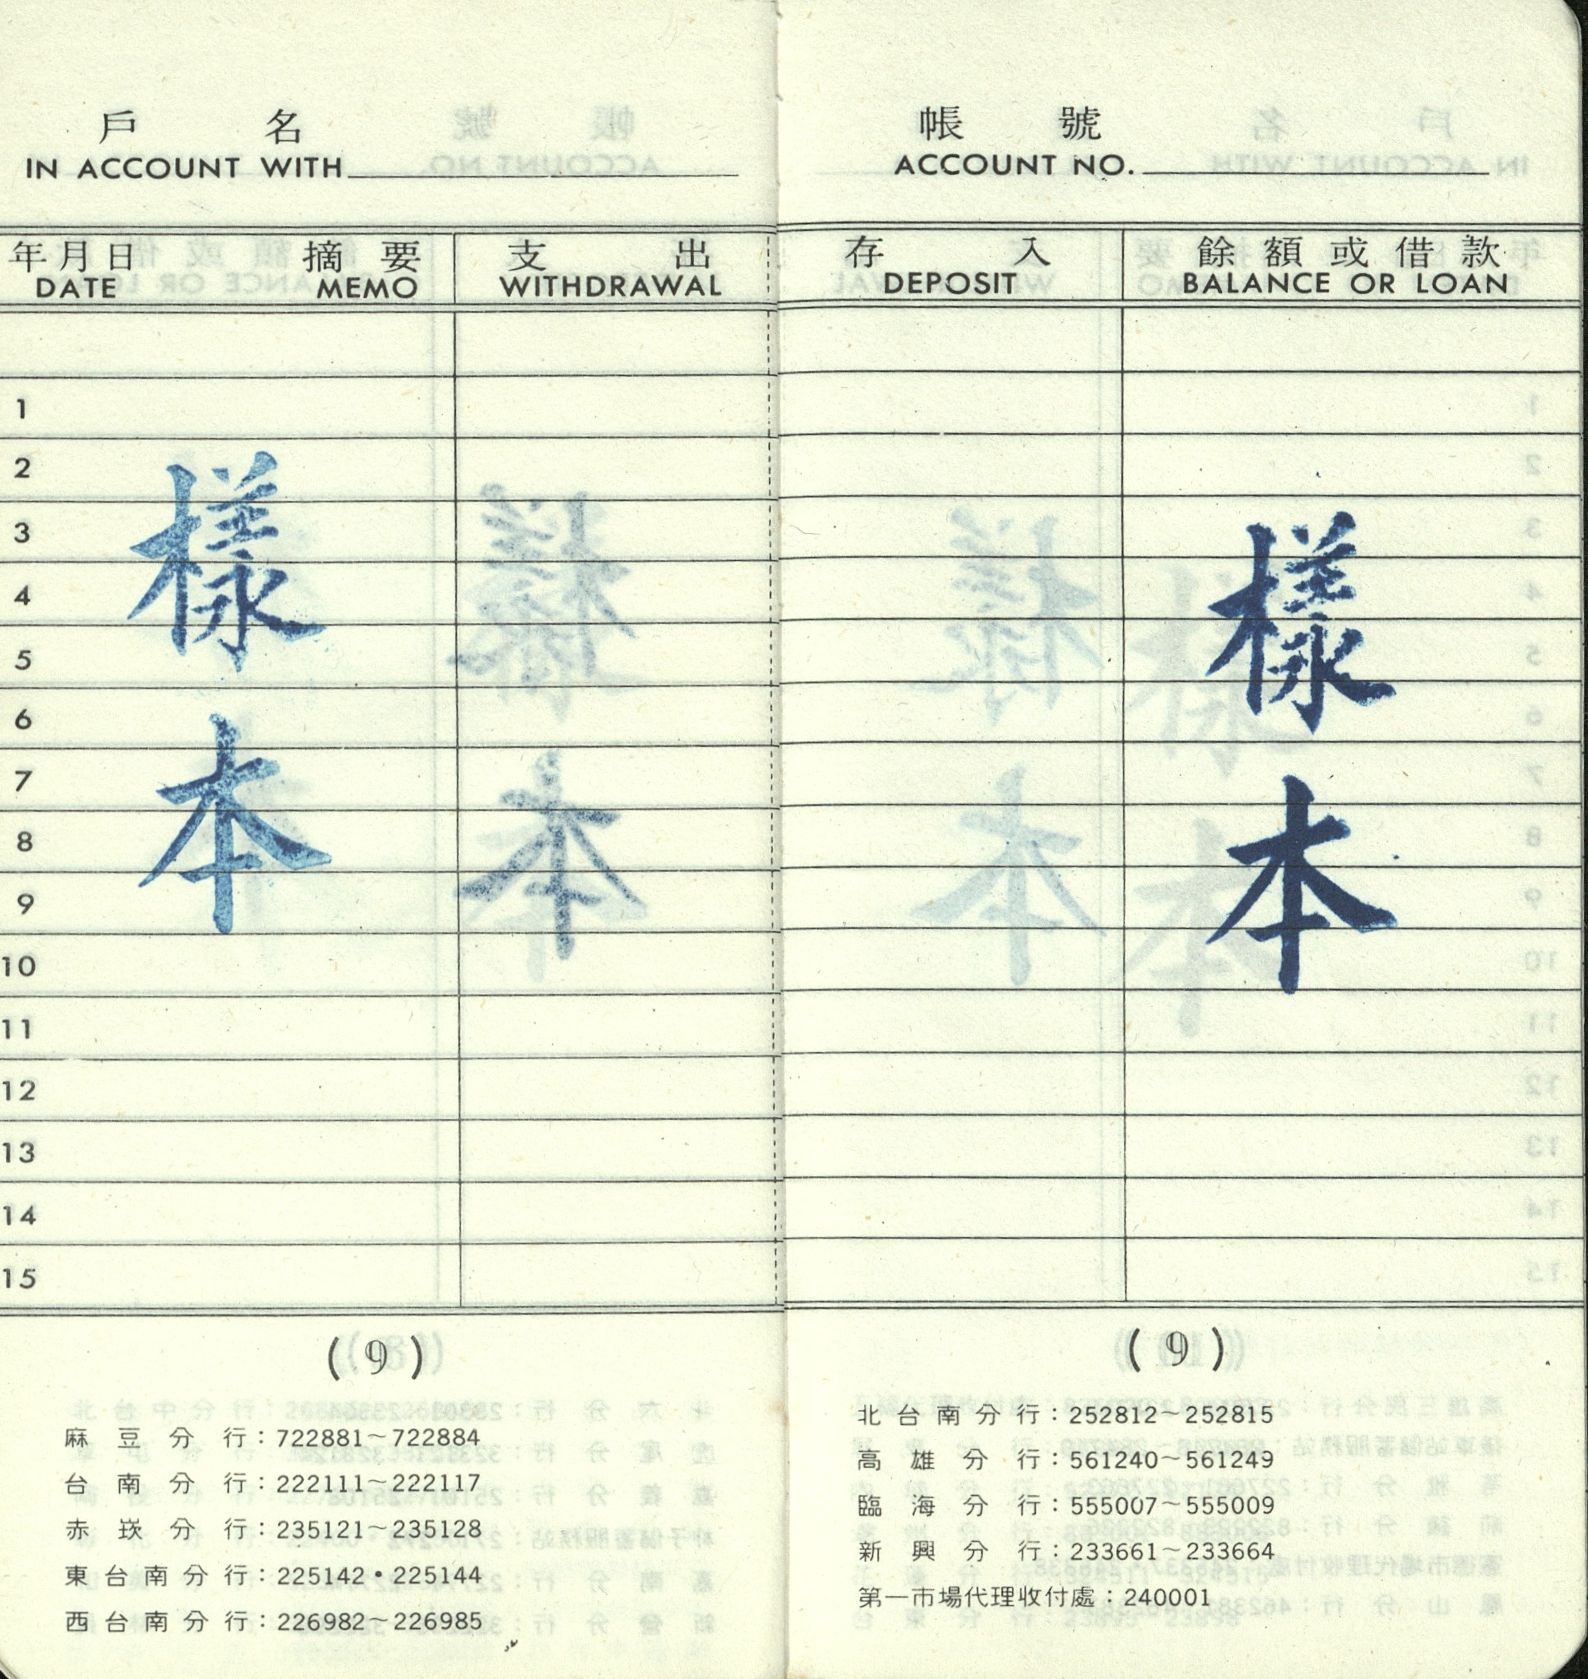 戶 名
IN ACCOUNT WITH
年月日 摘要 支出
DATE MEMO WITHDRAWAL
1
2
3
4
5
6
7
8
9
10
11
12
13
14
15
樣
本
(9)
麻豆分行：722881～722884
台南分行：222111～222117
赤崁分行：235121～235128
東台南分行：225142•225144
西台南分行：226982～226985
帳 號
ACCOUNT NO.
存入 餘額或借款
DEPOSIT BALANCE OR LOAN
樣
本
(9)
北台南分行：252812～252815
高雄分行：561240～561249
臨海分行：555007～555009
新興分行：233661～233664
第一市場代理收付處：240001